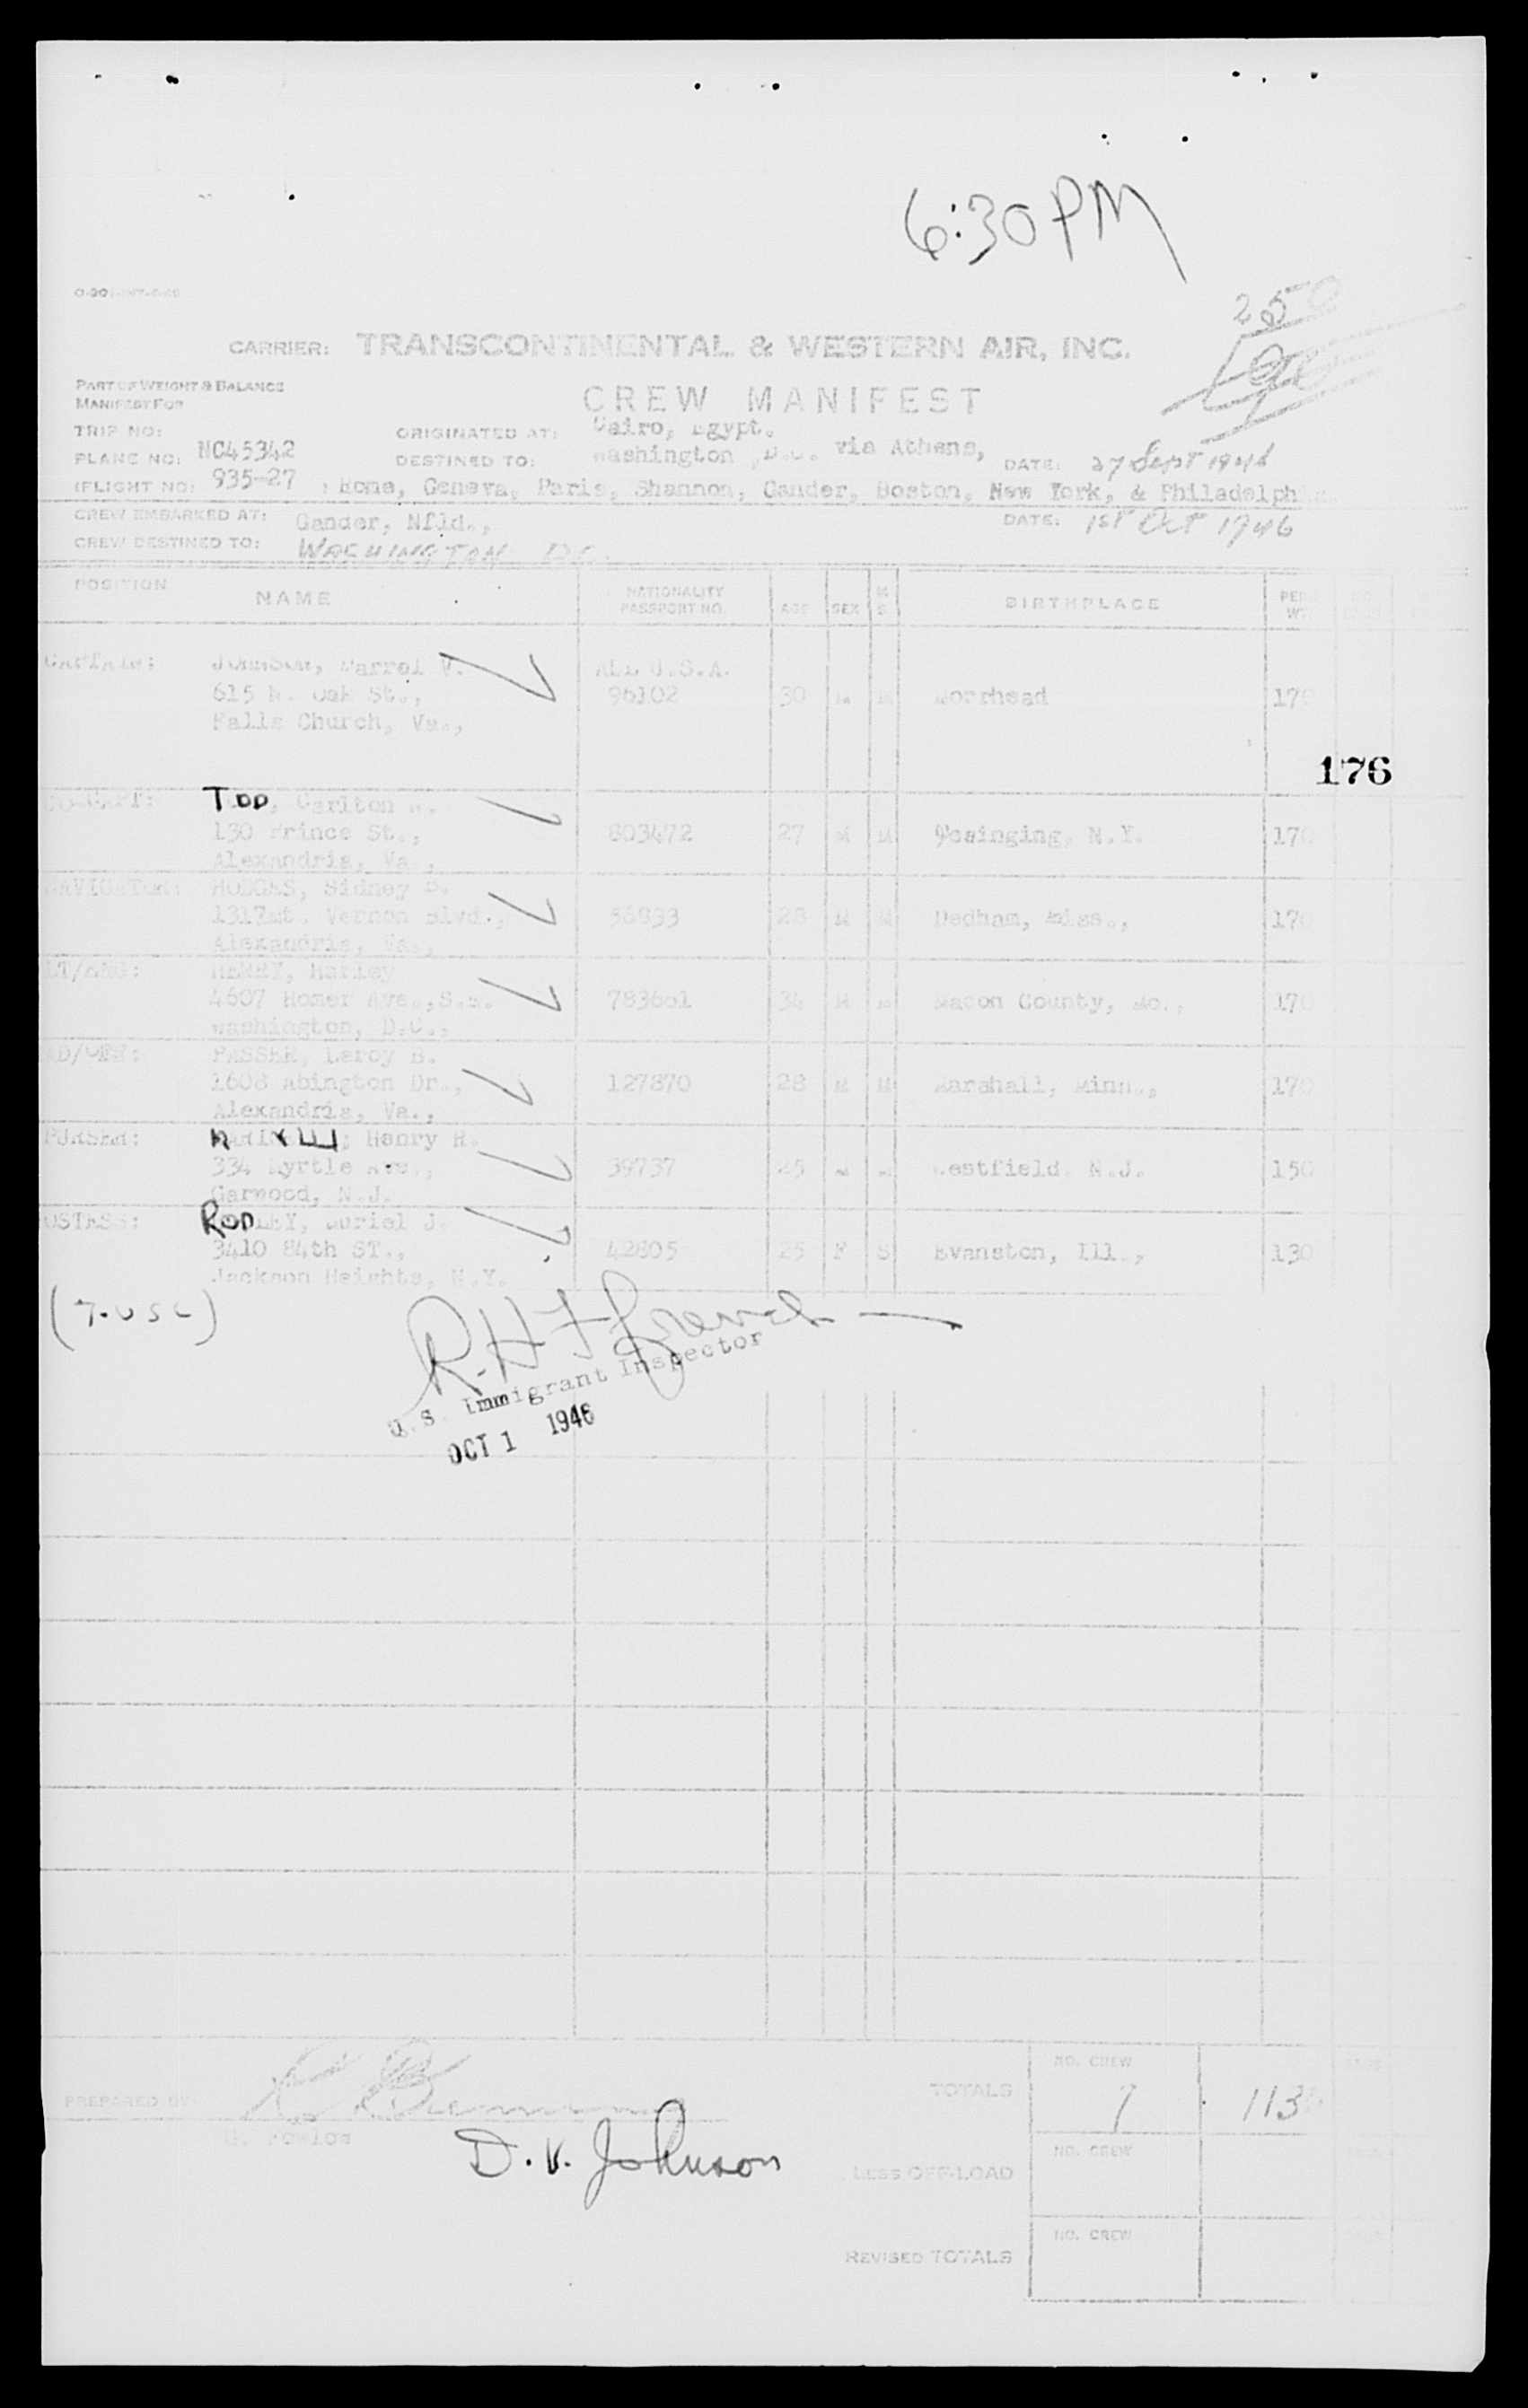 6:30 PM
250
CARRIER: TRANSCONTINENTAL & WESTERN AIR, INC.
PART OF WEIGHT & BALANCE
MANIFEST FOR
CREW MANIFEST
TRIP NO: ORIGINATED AT: Cairo, Egypt.
PLANE NO: NC45342 DESTINED TO: Washington, D.C. via Athens, DATE: 27 Sept 1946
(FLIGHT NO: 935-27 : Rome, Geneva, Paris, Shannon, Gander, Boston, New York, & Philadelph
CREW EMBARKED AT: Gander, Nfld., DATE: 1st Oct 1946
CREW DESTINED TO: WASHINGTON D.C.
POSITION NAME NATIONALITY PASSPORT NO. AGE SEX M S BIRTHPLACE PER. WT.
CAPTAIN: JOHNSON, Darrel V. ALL U.S.A.
615 N. Oak St., 96102 30 M M Moorhead 170
Falls Church, Va.,
176
TODD, Carlton
130 Prince St., 803472 27 M M Ossinging, N.Y. 170
Alexandria, Va.,
NAVIGATOR: HODGES, Sidney
1317 Mt. Vernon Blvd., 28 M M Dedham, 170
Alexandria, Va.,
HENRY, Harley
4607 Homer Ave., S.E. 34 M M Macon County, Mo., 170
Washington, D.C.,
PASSER, Leroy B.
1608 Abington Dr., 127870 28 M M Marshall, Minn., 170
Alexandria, Va.,
PURSER: Henry R.
334 Myrtle Ave., 39737 25 M Westfield, N.J. 150
Garwood, N.J.
HOSTESS: Muriel J.
3410 84th ST., 42805 25 F S Evanston, Ill., 130
Jackson Heights, N.Y.
(7-USC)
R.H.F. French
U. S. Immigrant Inspector
OCT 1 1946
NO. CREW
PREPARED BY TOTALS 7 113
D. V. Johnson
NO. CREW
LESS OFF-LOAD
NO. CREW
REVISED TOTALS